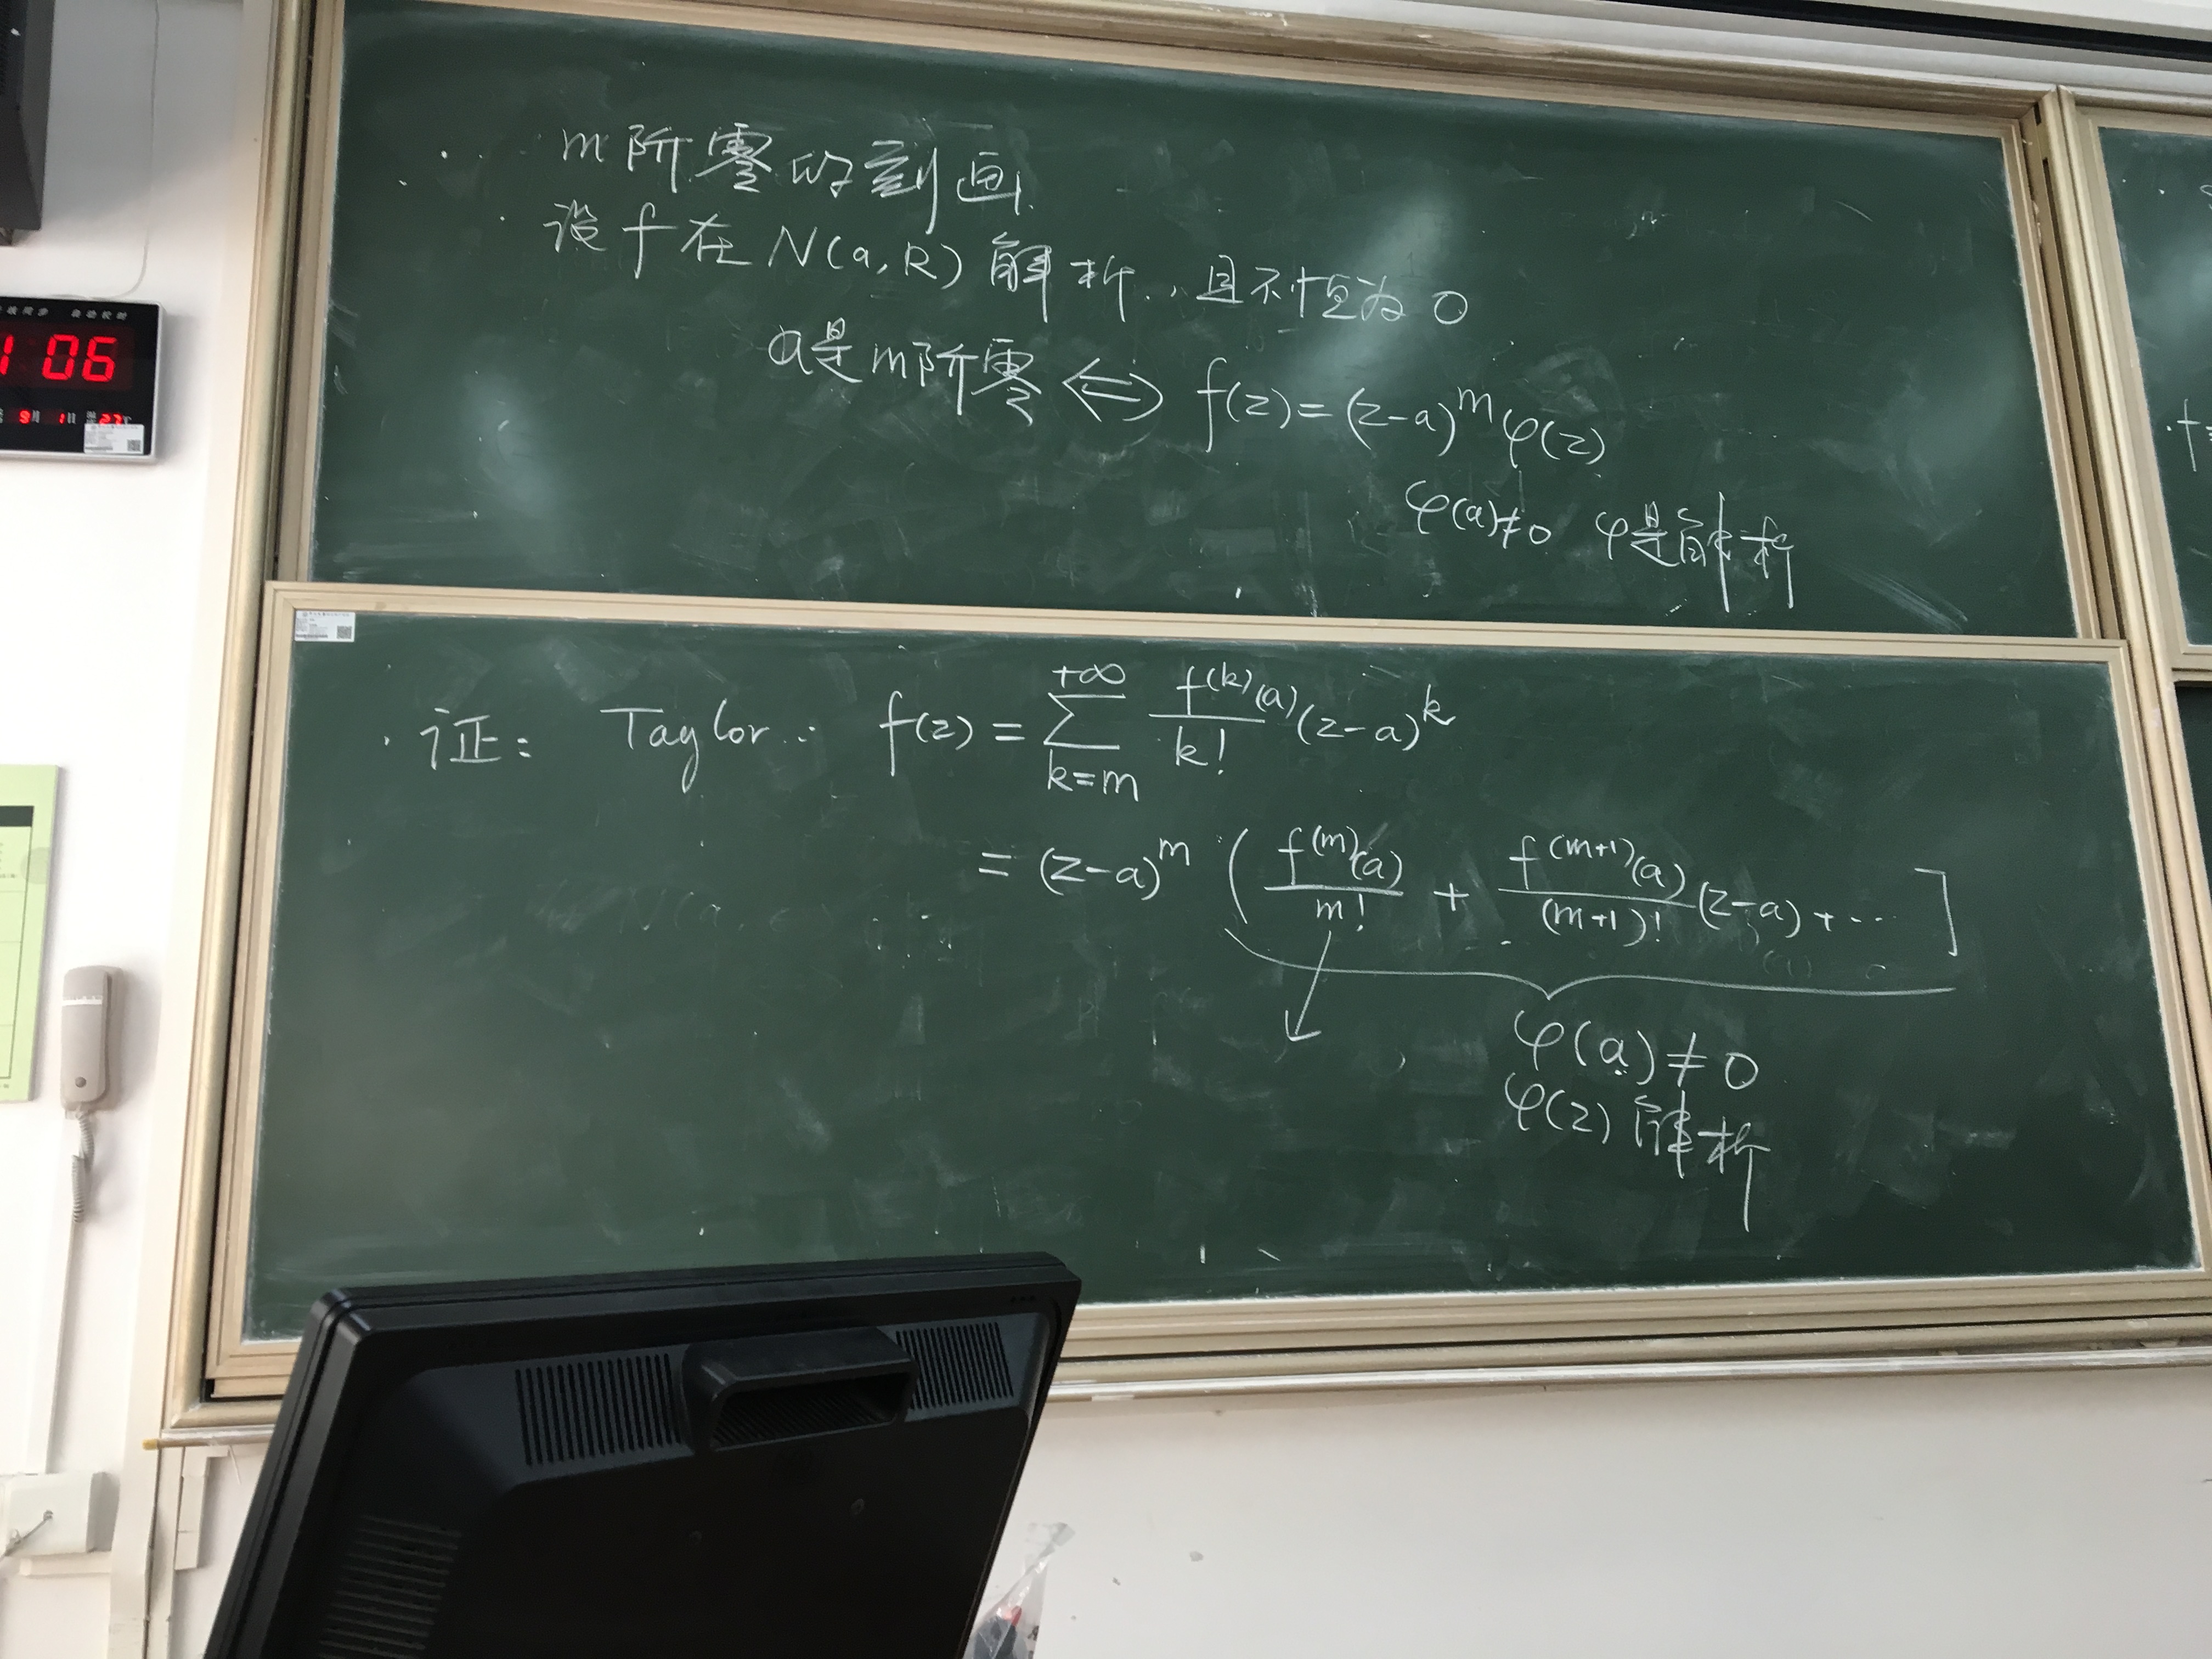 m阶零的刻画
设f在N(a,R)解析,且不恒为0
a是m阶零⇔f(z)=(z-a)^m φ(z)
φ(a)≠0 φ是解析
证: Taylor: f(z)=∑_{k=m}^{+∞} \frac{f^{(k)}(a)}{k!}(z-a)^k
=(z-a)^m ( \frac{f^{(m)}(a)}{m!} + \frac{f^{(m+1)}(a)}{(m+1)!}(z-a)+… ]
φ(a)≠0
φ(z)解析
自动校时
06
9月 1日 23℃